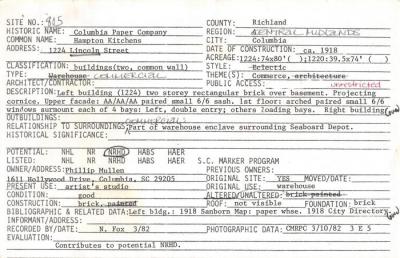 SITE NO.: 815 COUNTY: Richland
HISTORIC NAME: Columbia Paper Company REGION: CENTRAL MIDLANDS
COMMON NAME: Hampton Kitchens CITY: Columbia
ADDRESS: 1224 Lincoln Street DATE OF CONSTRUCTION: ca. 1918
ACREAGE:1224:74x80' ( );1220:39.5x74' ( )
CLASSIFICATION: buildings(two, common wall) STYLE: Eclectic
TYPE: Warehouse COMMERCIAL THEME(S): Commerce, architecture
ARCHITECT/CONTRACTOR: PUBLIC ACCESS: unrestricted
DESCRIPTION:Left building (1224) two storey rectangular brick over basement. Projecting
cornice. Upper facade: AA/AA/AA paired small 6/6 sash. 1st floor: arched paired small 6/6
windows surmount each of 4 bays: Left, double entry; others loading bays. Right building (over)
OUTBUILDINGS: COMMERCIAL
RELATIONSHIP TO SURROUNDINGS: Part of warehouse enclave surrounding Seaboard Depot.
HISTORICAL SIGNIFICANCE:
POTENTIAL: NHL NR NRHD HABS HAER
LISTED: NHL NR NRHD HABS HAER S.C. MARKER PROGRAM
OWNER/ADDRESS:Phillip Mullen PREVIOUS OWNERS:
1611 Hollywood Drive, Columbia, SC (29205) ORIGINAL SITE: YES MOVED/DATE:
PRESENT USE: artist's studio ORIGINAL USE: warehouse
CONDITION: good ALTERED/UNALTERED: brick painted
CONSTRUCTION: brick, painted ROOF: not visible FOUNDATION: brick
BIBLIOGRAPHICAL & RELATED DATA:Left bldg.: 1918 Sanborn Map: paper whse. 1918 City Directory (over)
INFORMANT/OTHER:
RECORDED BY/DATE: N. Fox 3/82 PHOTOGRAPHIC DATA: CMRPC 3/10/82 3 E 5
EVALUATION:
Contributes to potential NRHD.